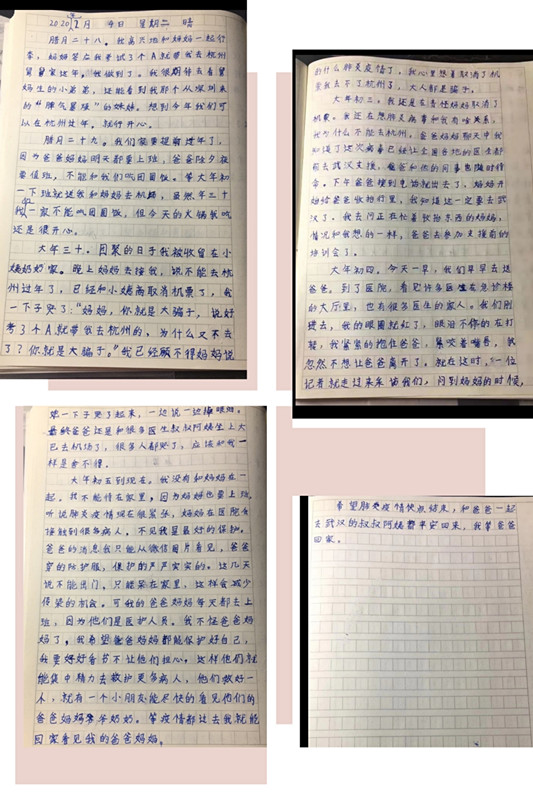 2020年2月 今日 星期二 晴
腊月二十八。我高兴地和妈妈一起行
李,妈妈答应我考试了3个A就带我去杭州
舅舅家过年。我做到了。我很期待去看舅
妈生的小弟弟,还能看到我那个从深圳来
的“脾气暴躁”的妹妹,想到今年我们可
以在杭州过年,就行开心。
腊月二十九。我们就要提前过年了,
因为爸爸妈妈明天都要上班,爸爸除夕夜
要值班,不能和我们吃团圆饭。等大年初
一下班就送我和妈妈去机场,虽然年三十
我一家不能吃团圆饭,但今天的火锅我吃
还是很开心。
大年三十。团聚的日子我被收留在小
姨奶奶家。晚上妈妈去接我,说不能去杭
州过年了,已经和小姨商取消机票了,我
一下子哭了:“妈妈,你就是大骗子,说好
考3个A就带我去杭州的、为什么又不去
了?你就是大骗子。”我已经顾不得妈妈说
的什么肺炎疫情了,我心里想着取消了机
票我去不了杭州了,大人都是骗子。
大年初二,我还是在责怪妈妈取消了
机票。我还在想肺炎病毒和我有啥关系,
我为什么不能去杭州。爸爸妈妈聊天中我
知道了这次病毒已经让全国各地的医生都
前去武汉支援,爸爸和他的同事也随时待
命。下午爸爸接到电话就出去了,妈妈开
始给爸爸收拾行李,我知道这一定要去武
汉了,我去问正在忙着收拾东西的妈妈,
情况和我想的一样,爸爸去参加支援前的
培训会了。
大年初四,今天一早,我们早早去送
爸爸。到了医院,看见许多医生在急诊楼
的大厅里,也有很多医生的家人。我们刚
进去,我的眼圈就红了,眼泪不停的在打
转,我紧紧的抱住爸爸,紧咬着嘴唇,我
忽然不想让爸爸离开了。就在这时,一位
记者就走过来采访我们,问到妈妈的时候,
她一下子哭了起来,一边说一边擦眼泪。
最终爸爸还是和很多医生叔叔阿姨坐上大
巴去机场了,很多人都哭了,应该和我一
样是舍不得。
大年初五到现在。我没有和妈妈在一
起。我不能待在家里,因为妈妈也要上班,
听说肺炎疫情现在很紧张,妈妈在医院会
接触到很多病人,不见我是最好的保护。
爸爸的消息我只能从微信图片看见,爸爸
穿的防护服,保护的严严实实的。这几天
说不能出门。只能呆在家里,这样会减少
传染的机会。可我的爸爸妈妈每天都去上
班,因为他们是医护人员。我不怪爸爸妈
妈了,我希望爸爸妈妈都能保护好自己,
我要好好看书不让他们担心。这样他们就
能集中精力去救护更多病人,他们救好一
个人,就有一个小朋友能尽快的看见他们的
爸爸妈妈爷爷奶奶。等疫情都过去我就能
回家看见我的爸爸妈妈。
希望肺炎疫情快点结束,和爸爸一起
去武汉的叔叔阿姨都平安回来,我等爸爸
回家。